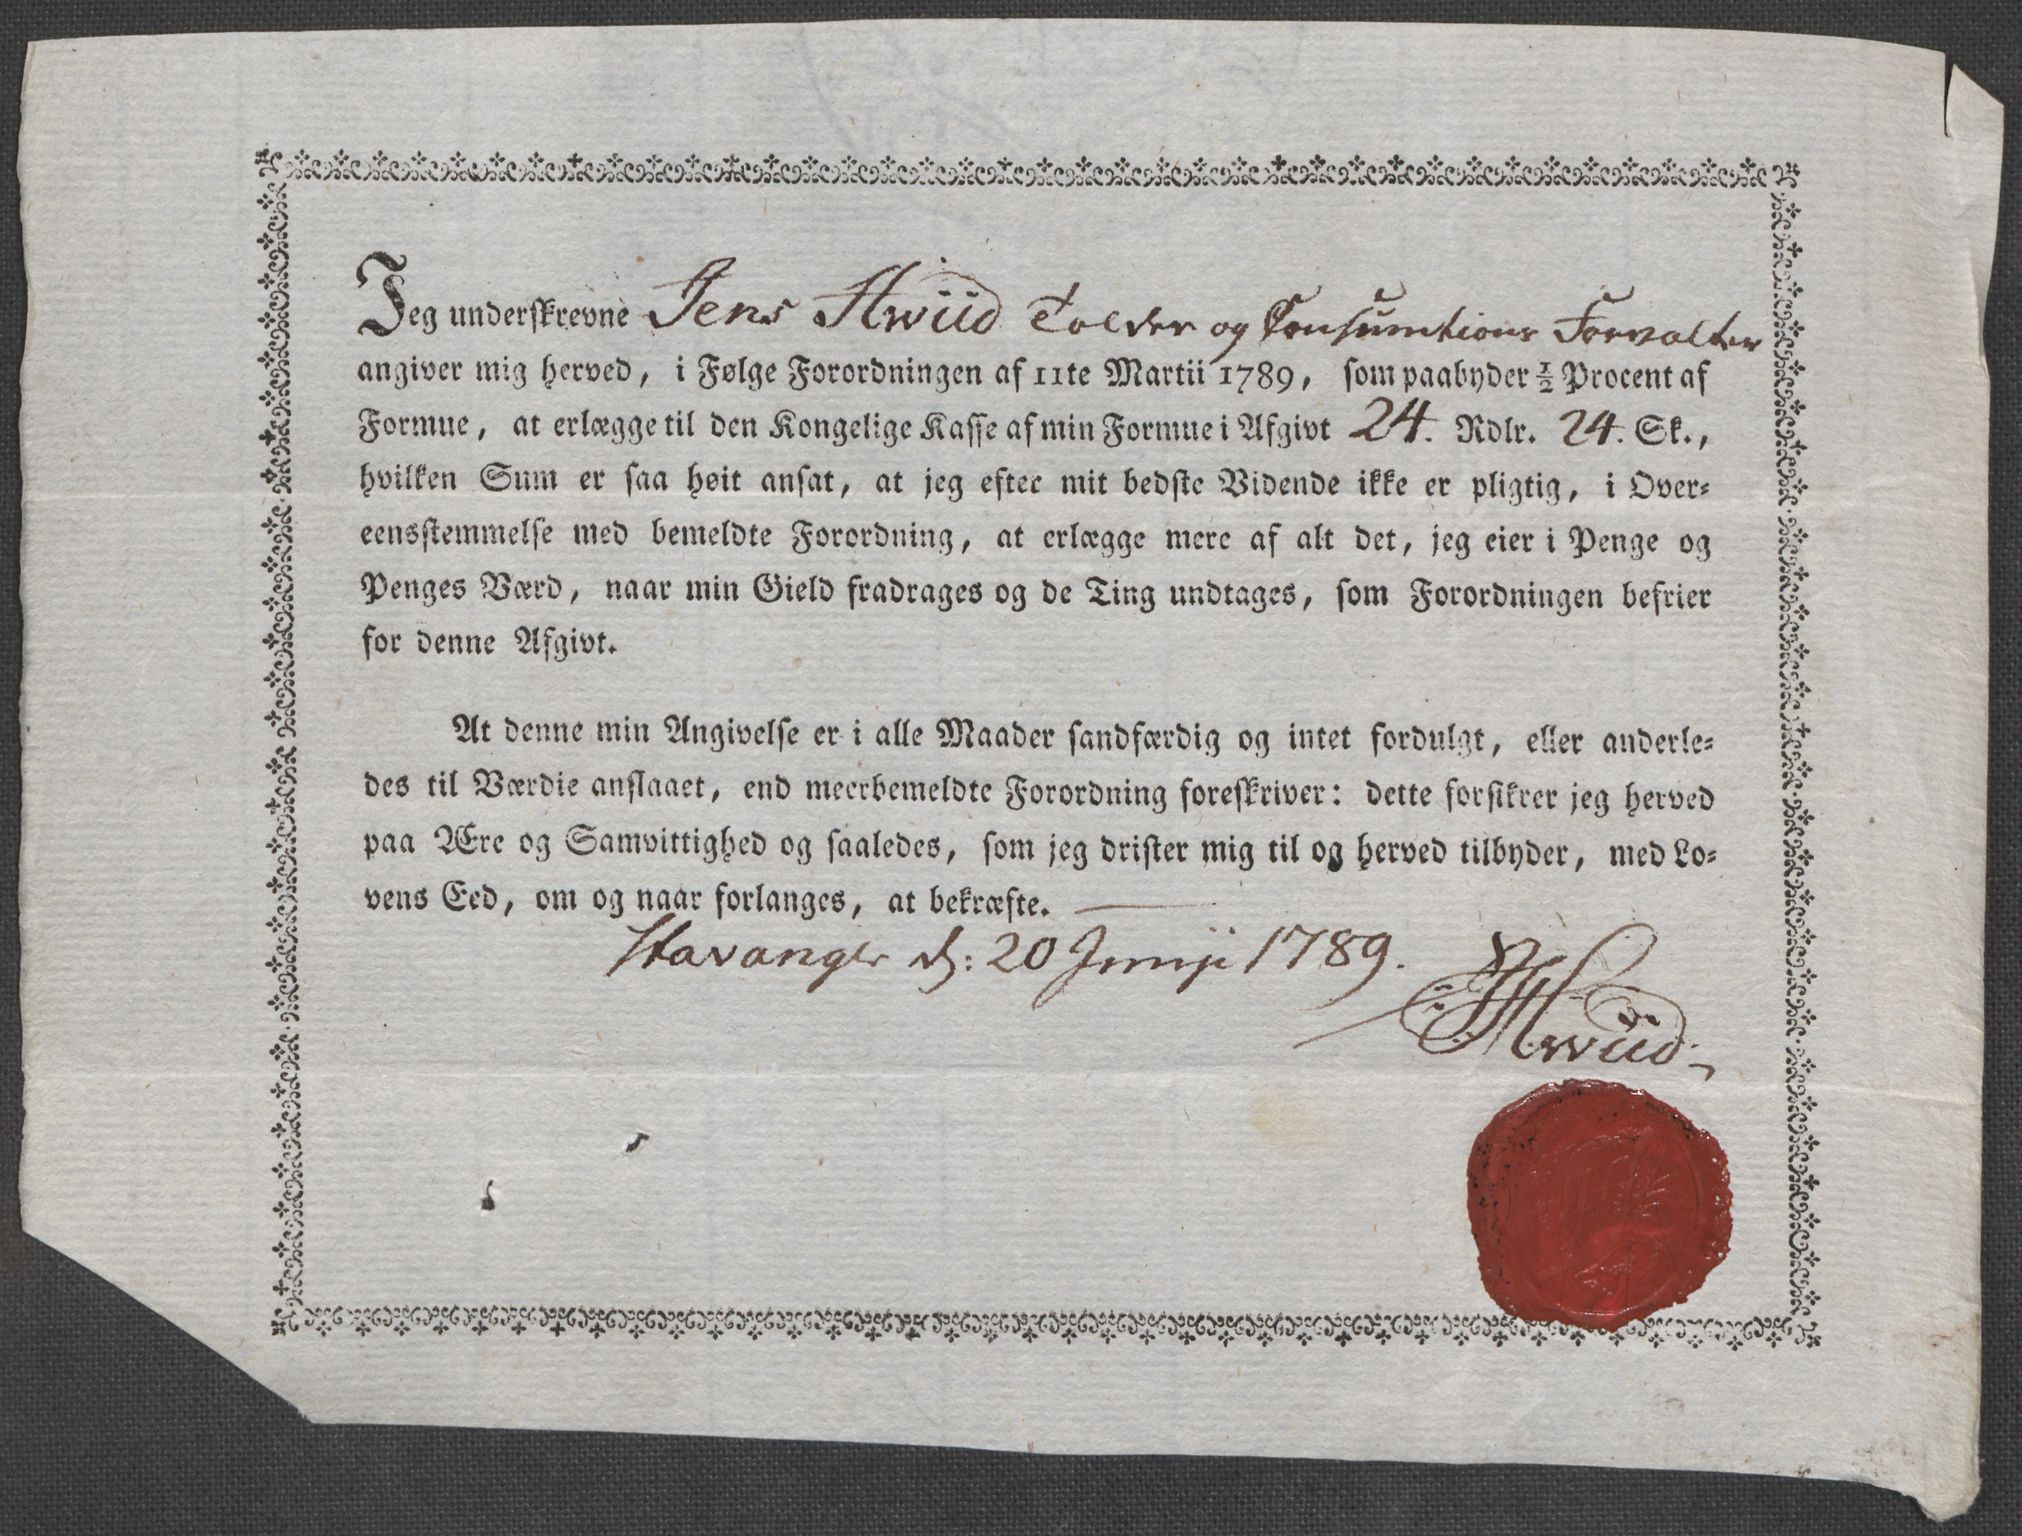 Jeg underskrevne Jens Hwiid Tolder og Consumtions Forvalter
angiver mig herved, i Følge Forordningen af 11te Martii 1789, som paabyder ½ Procent af
Formue, at erlægge til den Kongelige Kasse af min Formue i Afgivt 24. Rdlr. 24. Sk.,
hvilken Sum er saa høit ansat, at jeg efter mit bedste Vidende ikke er pligtig, i Over-
eensstemmelse med bemeldte Forordning, at erlægge mere af alt det, jeg eier i Penge og
Penges Værd, naar min Gield fradrages og de Ting undtages, som Forordningen befrier
for denne Afgivt.
At denne min Angivelse er i alle Maader sandfærdig og intet fordulgt, eller anderle-
des til Værdie anslaaet, end meerbemeldte Forordning foreskriver: dette forsikrer jeg herved
paa Ære og Samvittighed og saaledes, som jeg drister mig til og herved tilbyder, med Lo-
vens Eed, om og naar forlanges, at bekræfte.
Stavanger d: 20 Junij 1789.
Hwiid